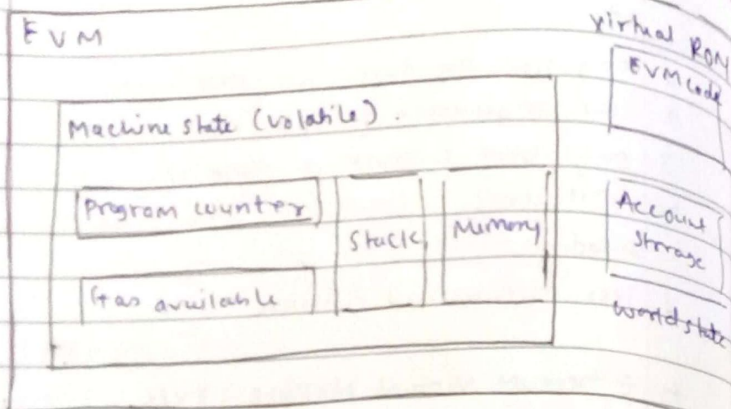 EVM
virtual ROM
EVM code
Machine state (volatile).
Program counter
Stack
Memory
Gas available
Account
Storage
world state